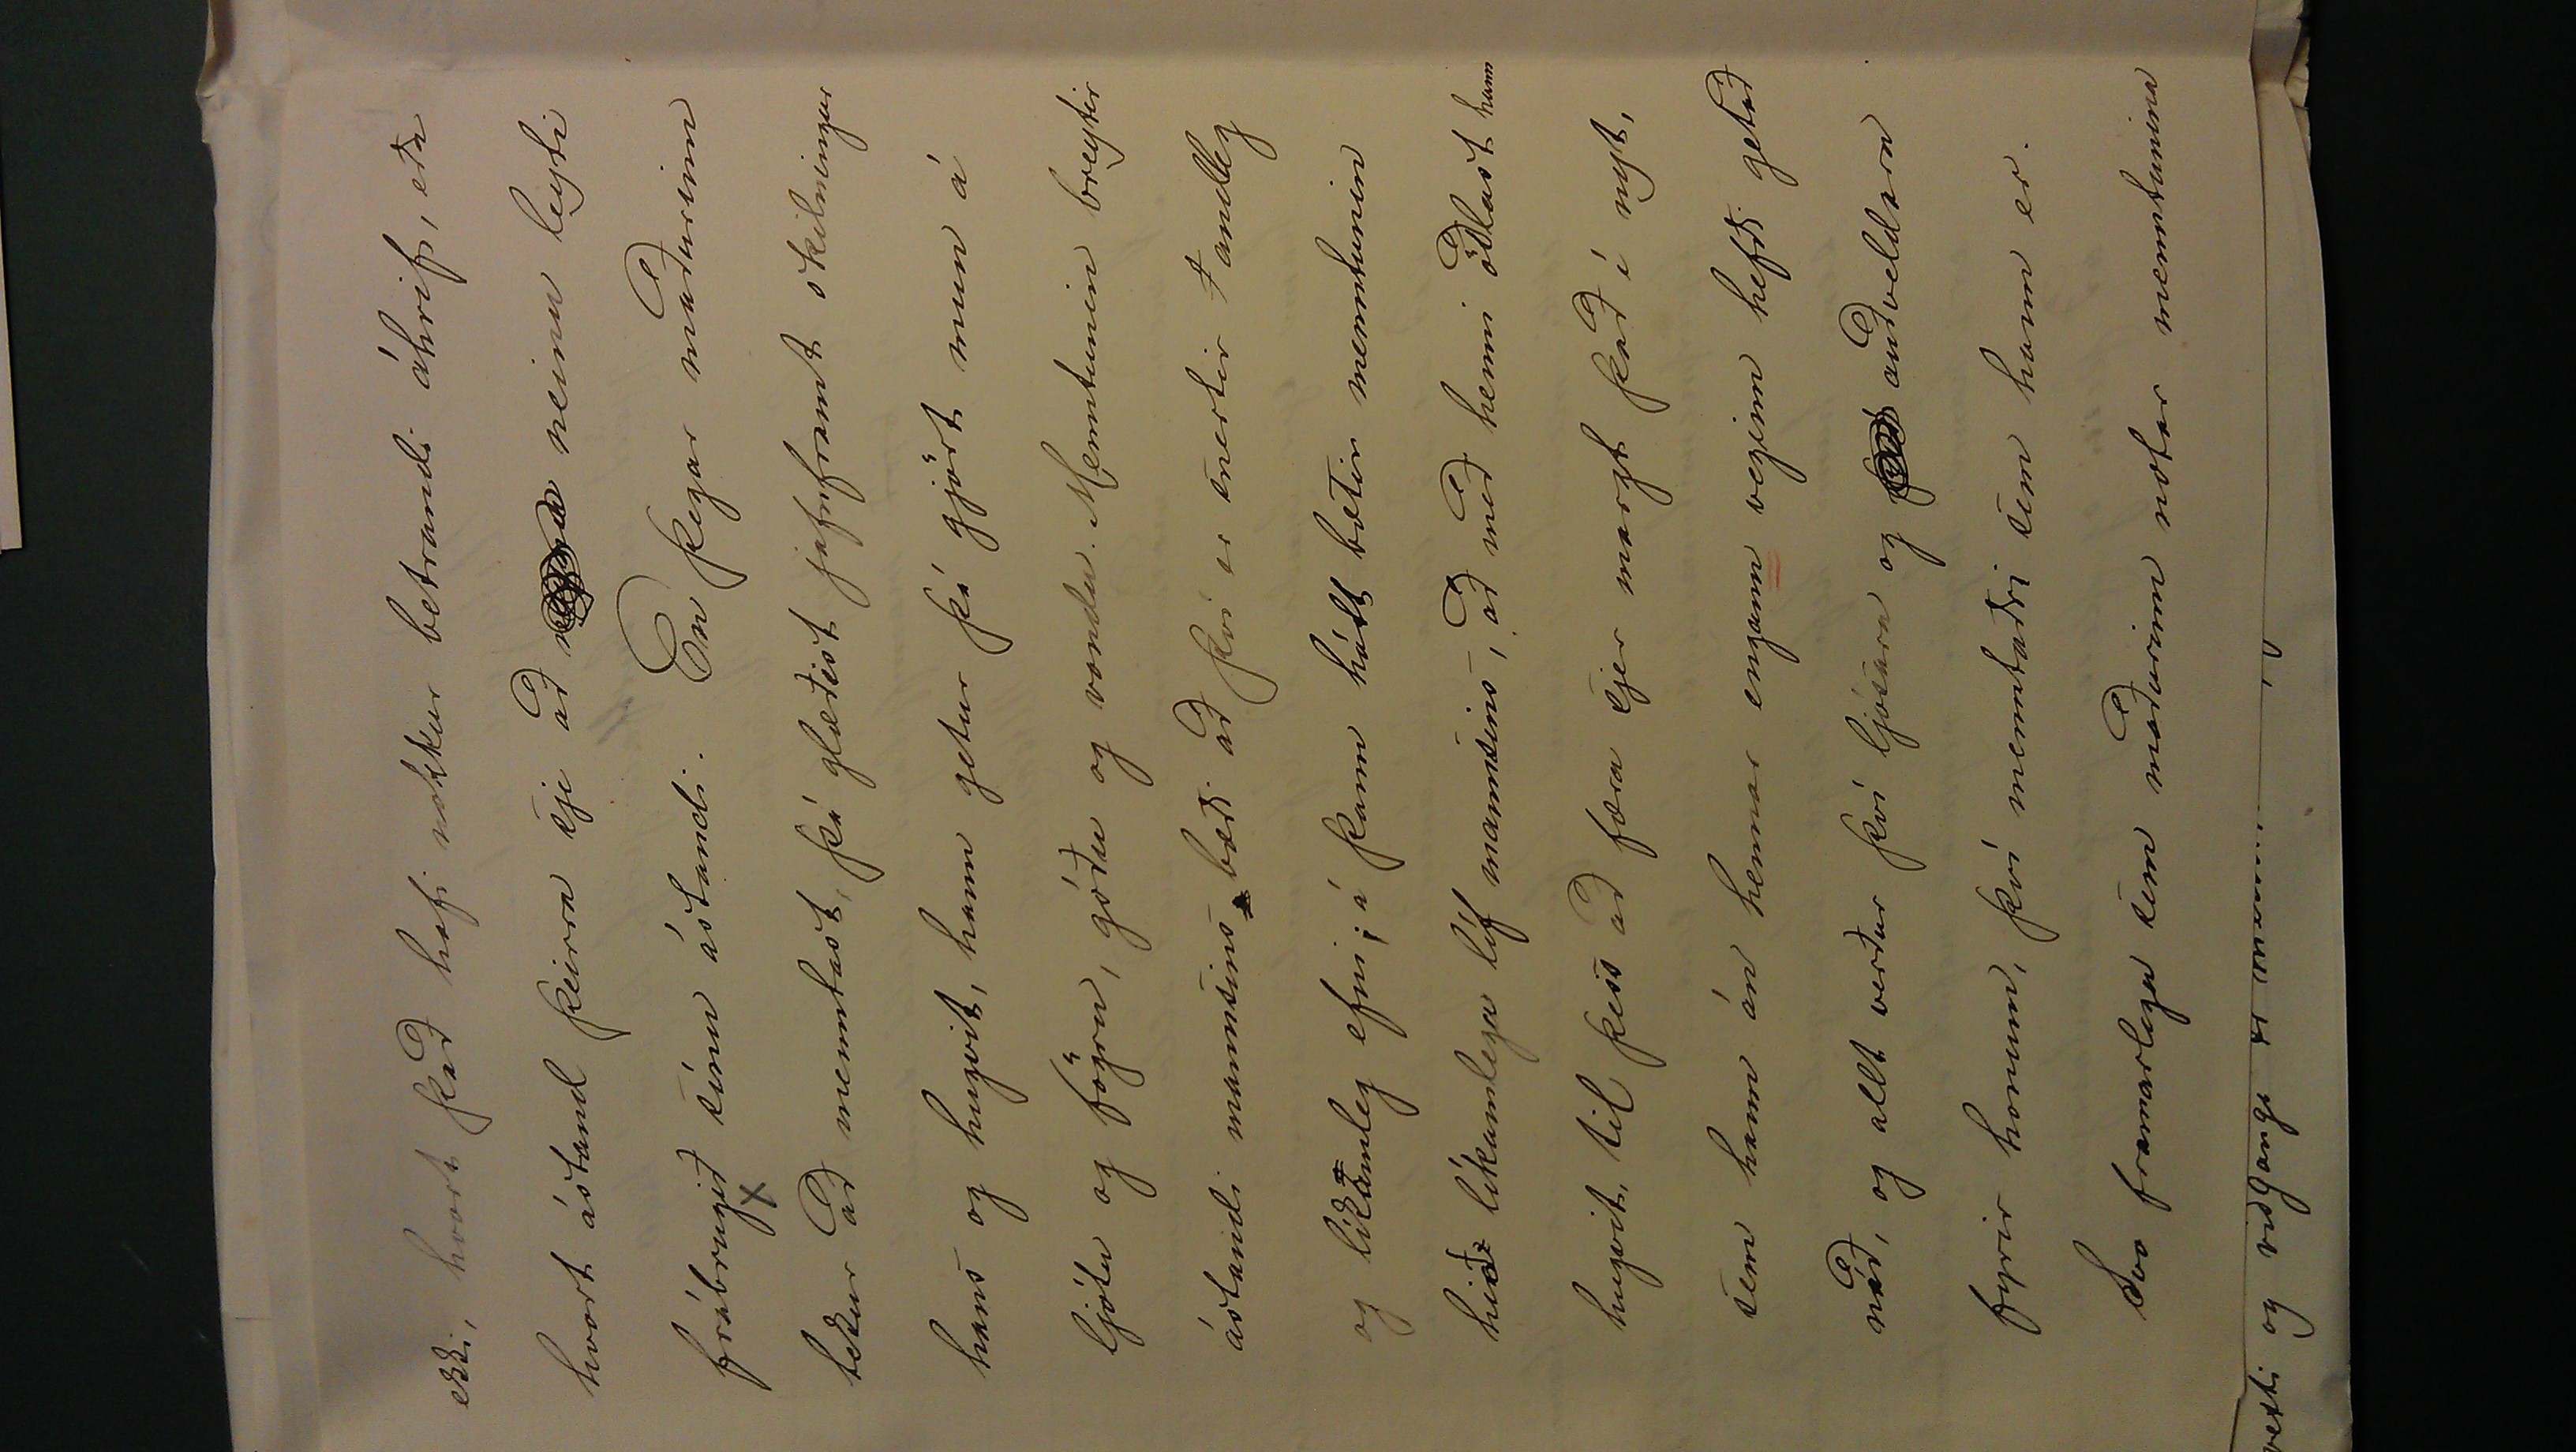 ekki, hvort það hafi nokkur betrandi áhrif, eða
hvort ástand þeirra sje að neinu leyti
frábrugið sínu ástandi. En þegar maðurinn
tekur að menntast, þá glæðist jafnframt skilningur
hans og hugvit, hann getur þá gjört mun á
ljótu og fögru, góðu og vondu. Menntunin breytir
ástandi mannsins bæði að því er snertir andleg
og líkamleg efni; á þann hátt bætir menntunin
hið líkamlega líf mannsins, að með henni öðlast hann
hugvit til þess að færa sjer margt það í nyt,
sem hann án hennar engann veginn hefði getað
náð, og allt verður því ljósara og auðveldara
fyrir honum, því menntaðri sem hann er.
Svo framarlega sem maðurinn notar menntunina
og viðgangi